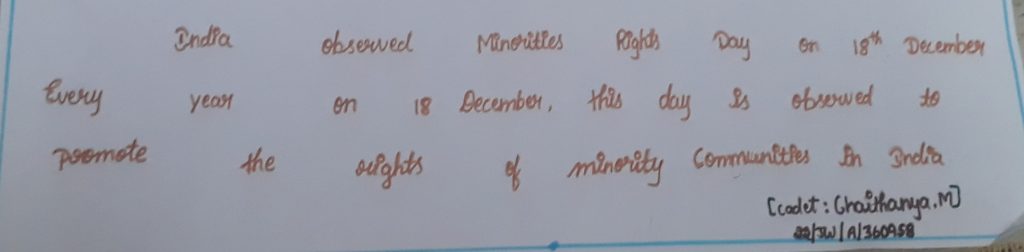 India observed Minorities Rights Day on 18th December
Every year on 18 December, this day is observed to
promote the rights of minority Communities in India
[cadet: Chaithanya.M]
22/JW/A/360958